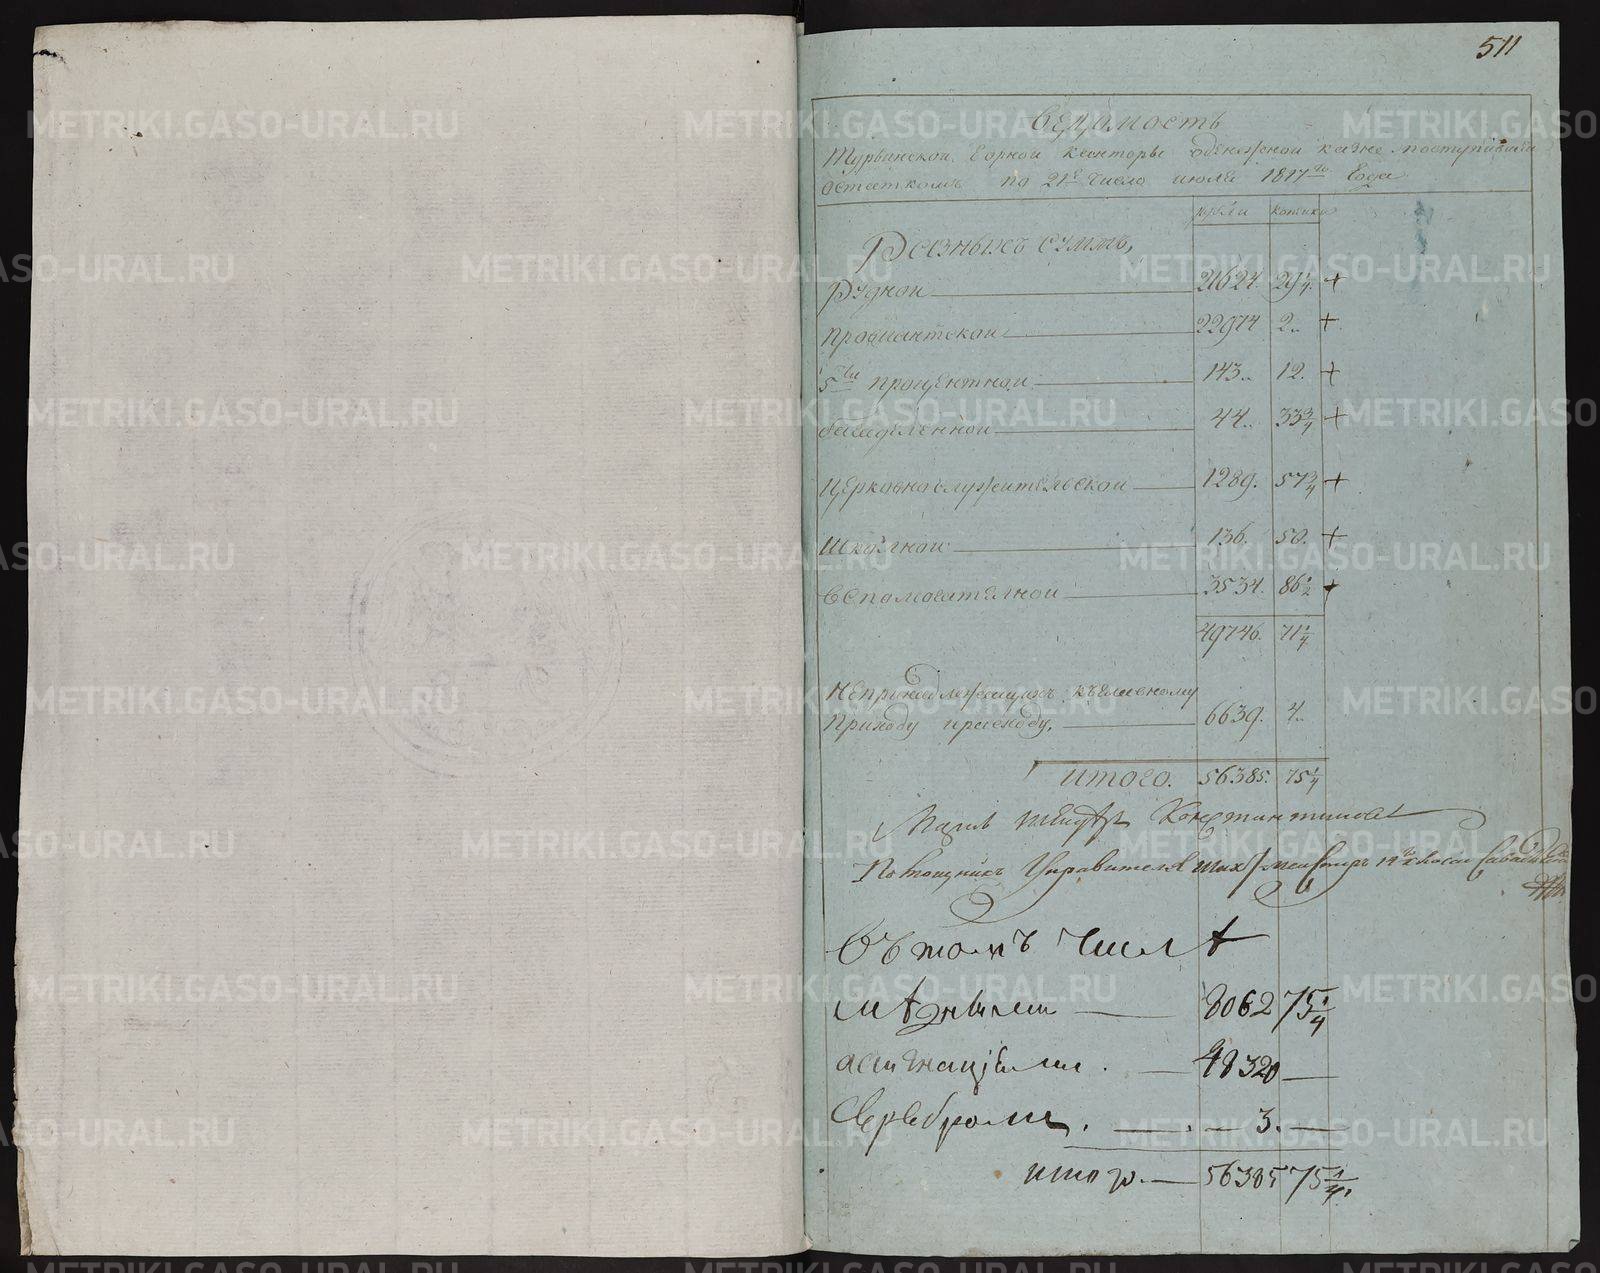 511
Ведомость
Турьинской Горной конторы о денежной казне поступившей
остаткомъ по 21е число июля 1817го Года
рубли копики
Разныхъ суммъ,
Рудной 21624. 29 1/4. +
Провиантской 22974 2.. +
5ти процентной 143.. 12. +
44.. 33 3/4 +
Церковнослужительской 1289. 57 3/4 +
Школной 136. 50. +
Вспомогателной 3534. 86 1/2 +
49746. 71 1/4
Непринадлежащихъ къ главному
Приходу и расходу. 6639. 4..
Итого. 56385. 75 1/4
Константиновъ
Помощникъ Управителя Шихтмейстеръ
Въ томъ числѣ
мѣдными 8062 75 1/4
ассигнацiями. 48320
Серебромъ. 3.
итого. 56385 75 1/4.
METRIKI.GASO-URAL.RU